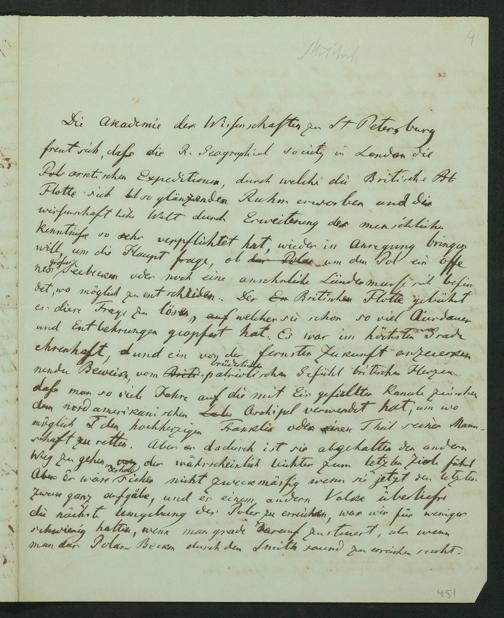 4
Die Akademie der Wissenschaften zu St Petersburg
freut sich, dass die R. Geographical society in London die
arctischen Expeditionen, durch welche die Britische
Flotte sich so glänzenden Ruhm erworben und die
wissenschaftliche Welt durch Erweiterung der menschlichen
Kenntniss so sehr verpflichtet hat, wieder in Anregung bringen
will, um die Haupt frage, ob um den Pol ein offe
nes Seebecken oder noch eine ansehnliche Ländermasse sich befin
det, wo möglich zu entscheiden. Der Britischen Flotte gebührt
es diese Frage zu lösen, auf welche sie schon so viel Ausdauer
und Entbehrungen geopfert hat. Es war im höchsten Grade
ehrenhaft, und ein von der fernsten Zukunft anzuerken
nender Beweis vom patriotischen Gefühl britischer Herzen
dass man so viel Jahre auf die mit Eis gefüllten Kanäle zwischen
dem nordamerikanischen Archipel verwendet hat, um wo
möglich den hochherzigen Franklin oder einen Theil seiner Mann-
schaft zu retten. Aber dadurch ist sie abgehalten den andern
Weg zu gehen, der wahrscheinlich leichter zum letzten Ziel führt
Es wäre sicher nicht zweckmässig wenn sie jetzt den letzten
Zweck ganz aufgäbe, und es einem andern Volke überliesse
die nächste Umgebung des Poles zu erreichen, was wir für weniger
schwierig halten, wenn man grade darauf zusteuert, als wenn
man das Polar Becken durch den Smith sound zu erreichen sucht.
451